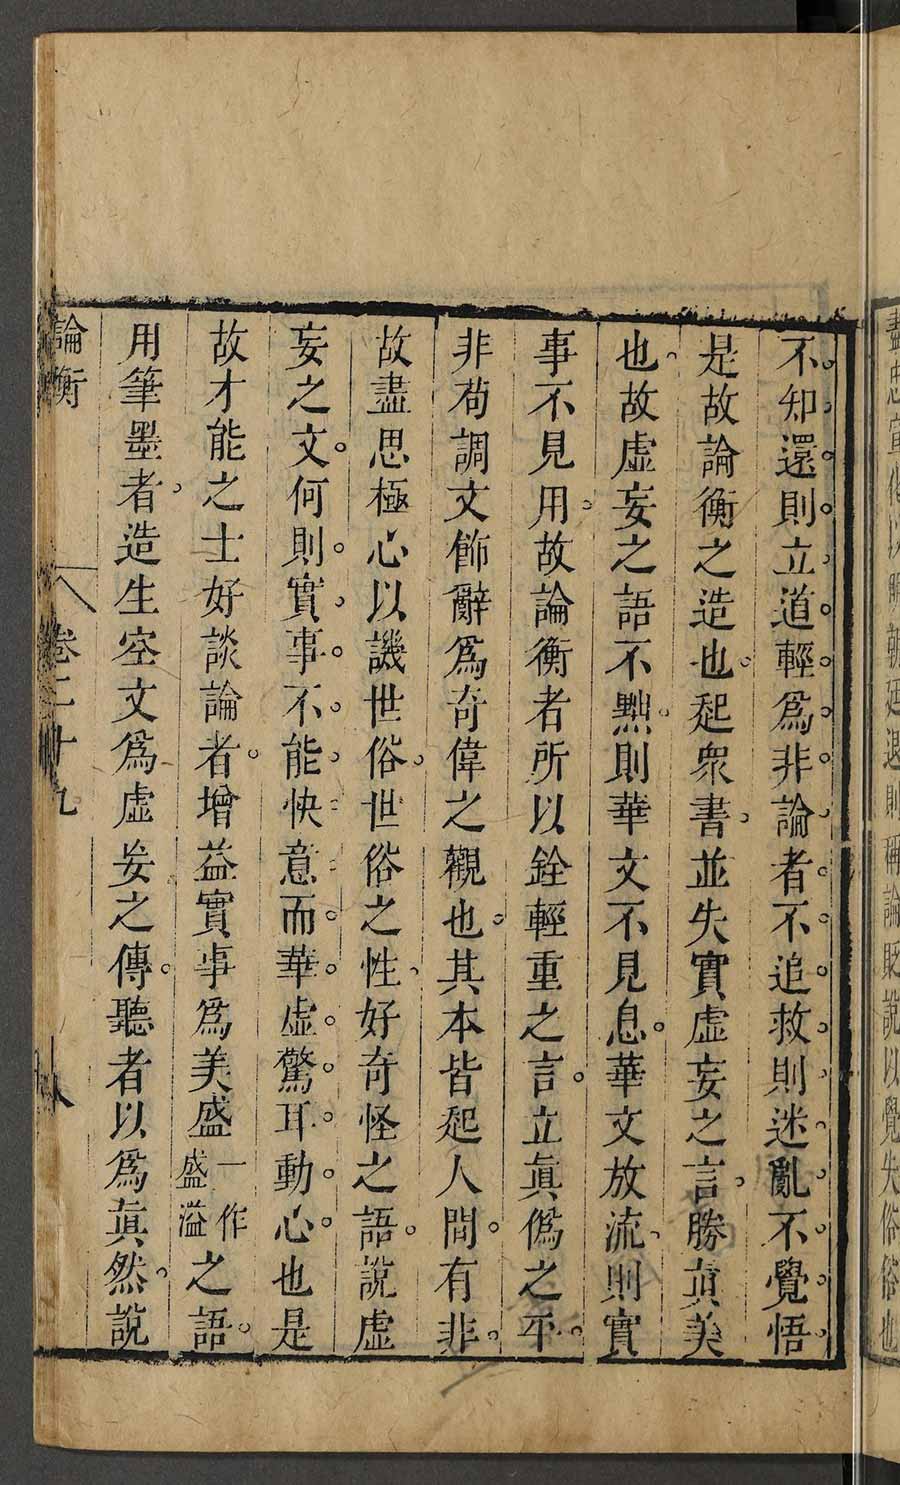 盡忠宣化以明朝廷退則稱論貶說以覺失俗俗也
不知還則立道輕爲非論者不追救則迷亂不覺悟
是故論衡之造也起衆書並失實虛妄之言勝眞美
也故虛妄之語不黜則華文不見息華文放流則實
事不見用故論衡者所以銓輕重之言立眞僞之平
非苟調文飾辭爲奇偉之觀也其本皆起人間有非
故盡思極心以譏世俗世俗之性好奇怪之語說虛
妄之文何則實事不能快意而華虛驚耳動心也是
故才能之士好談論者增益實事爲美盛一作盛溢之語
用筆墨者造生空文爲虛妄之傳聽者以爲眞然說
論衡 卷二十九 八